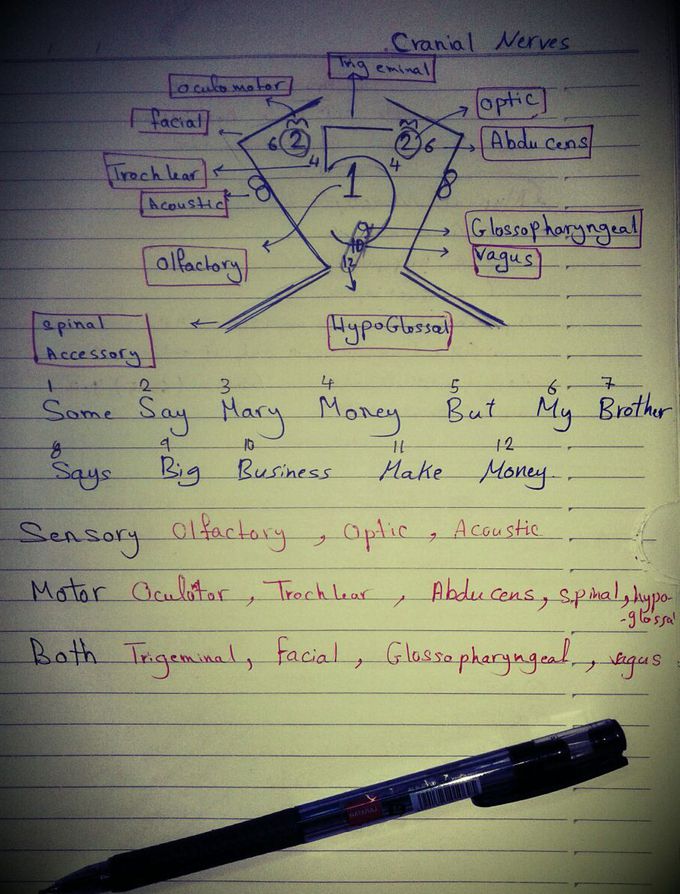 Cranial Nerves
Trigeminal
Oculomotor
Optic
facial
2
2
6
6
Abducens
4
4
Trochlear
1
8
8
Acoustic
9
Glossopharyngeal
10
Vagus
Olfactory
12
HypoGlossal
Spinal
Accessory
1 2 3 4 5 6 7
Some Say Mary Money But My Brother
8 9 10 11 12
Says Big Business Make Money
Sensory Olfactory , Optic , Acoustic
Motor Oculotor , Trochlear , Abducens, spinal, hypo-
-glossal
Both Trigeminal, facial , Glossopharyngeal , vagus